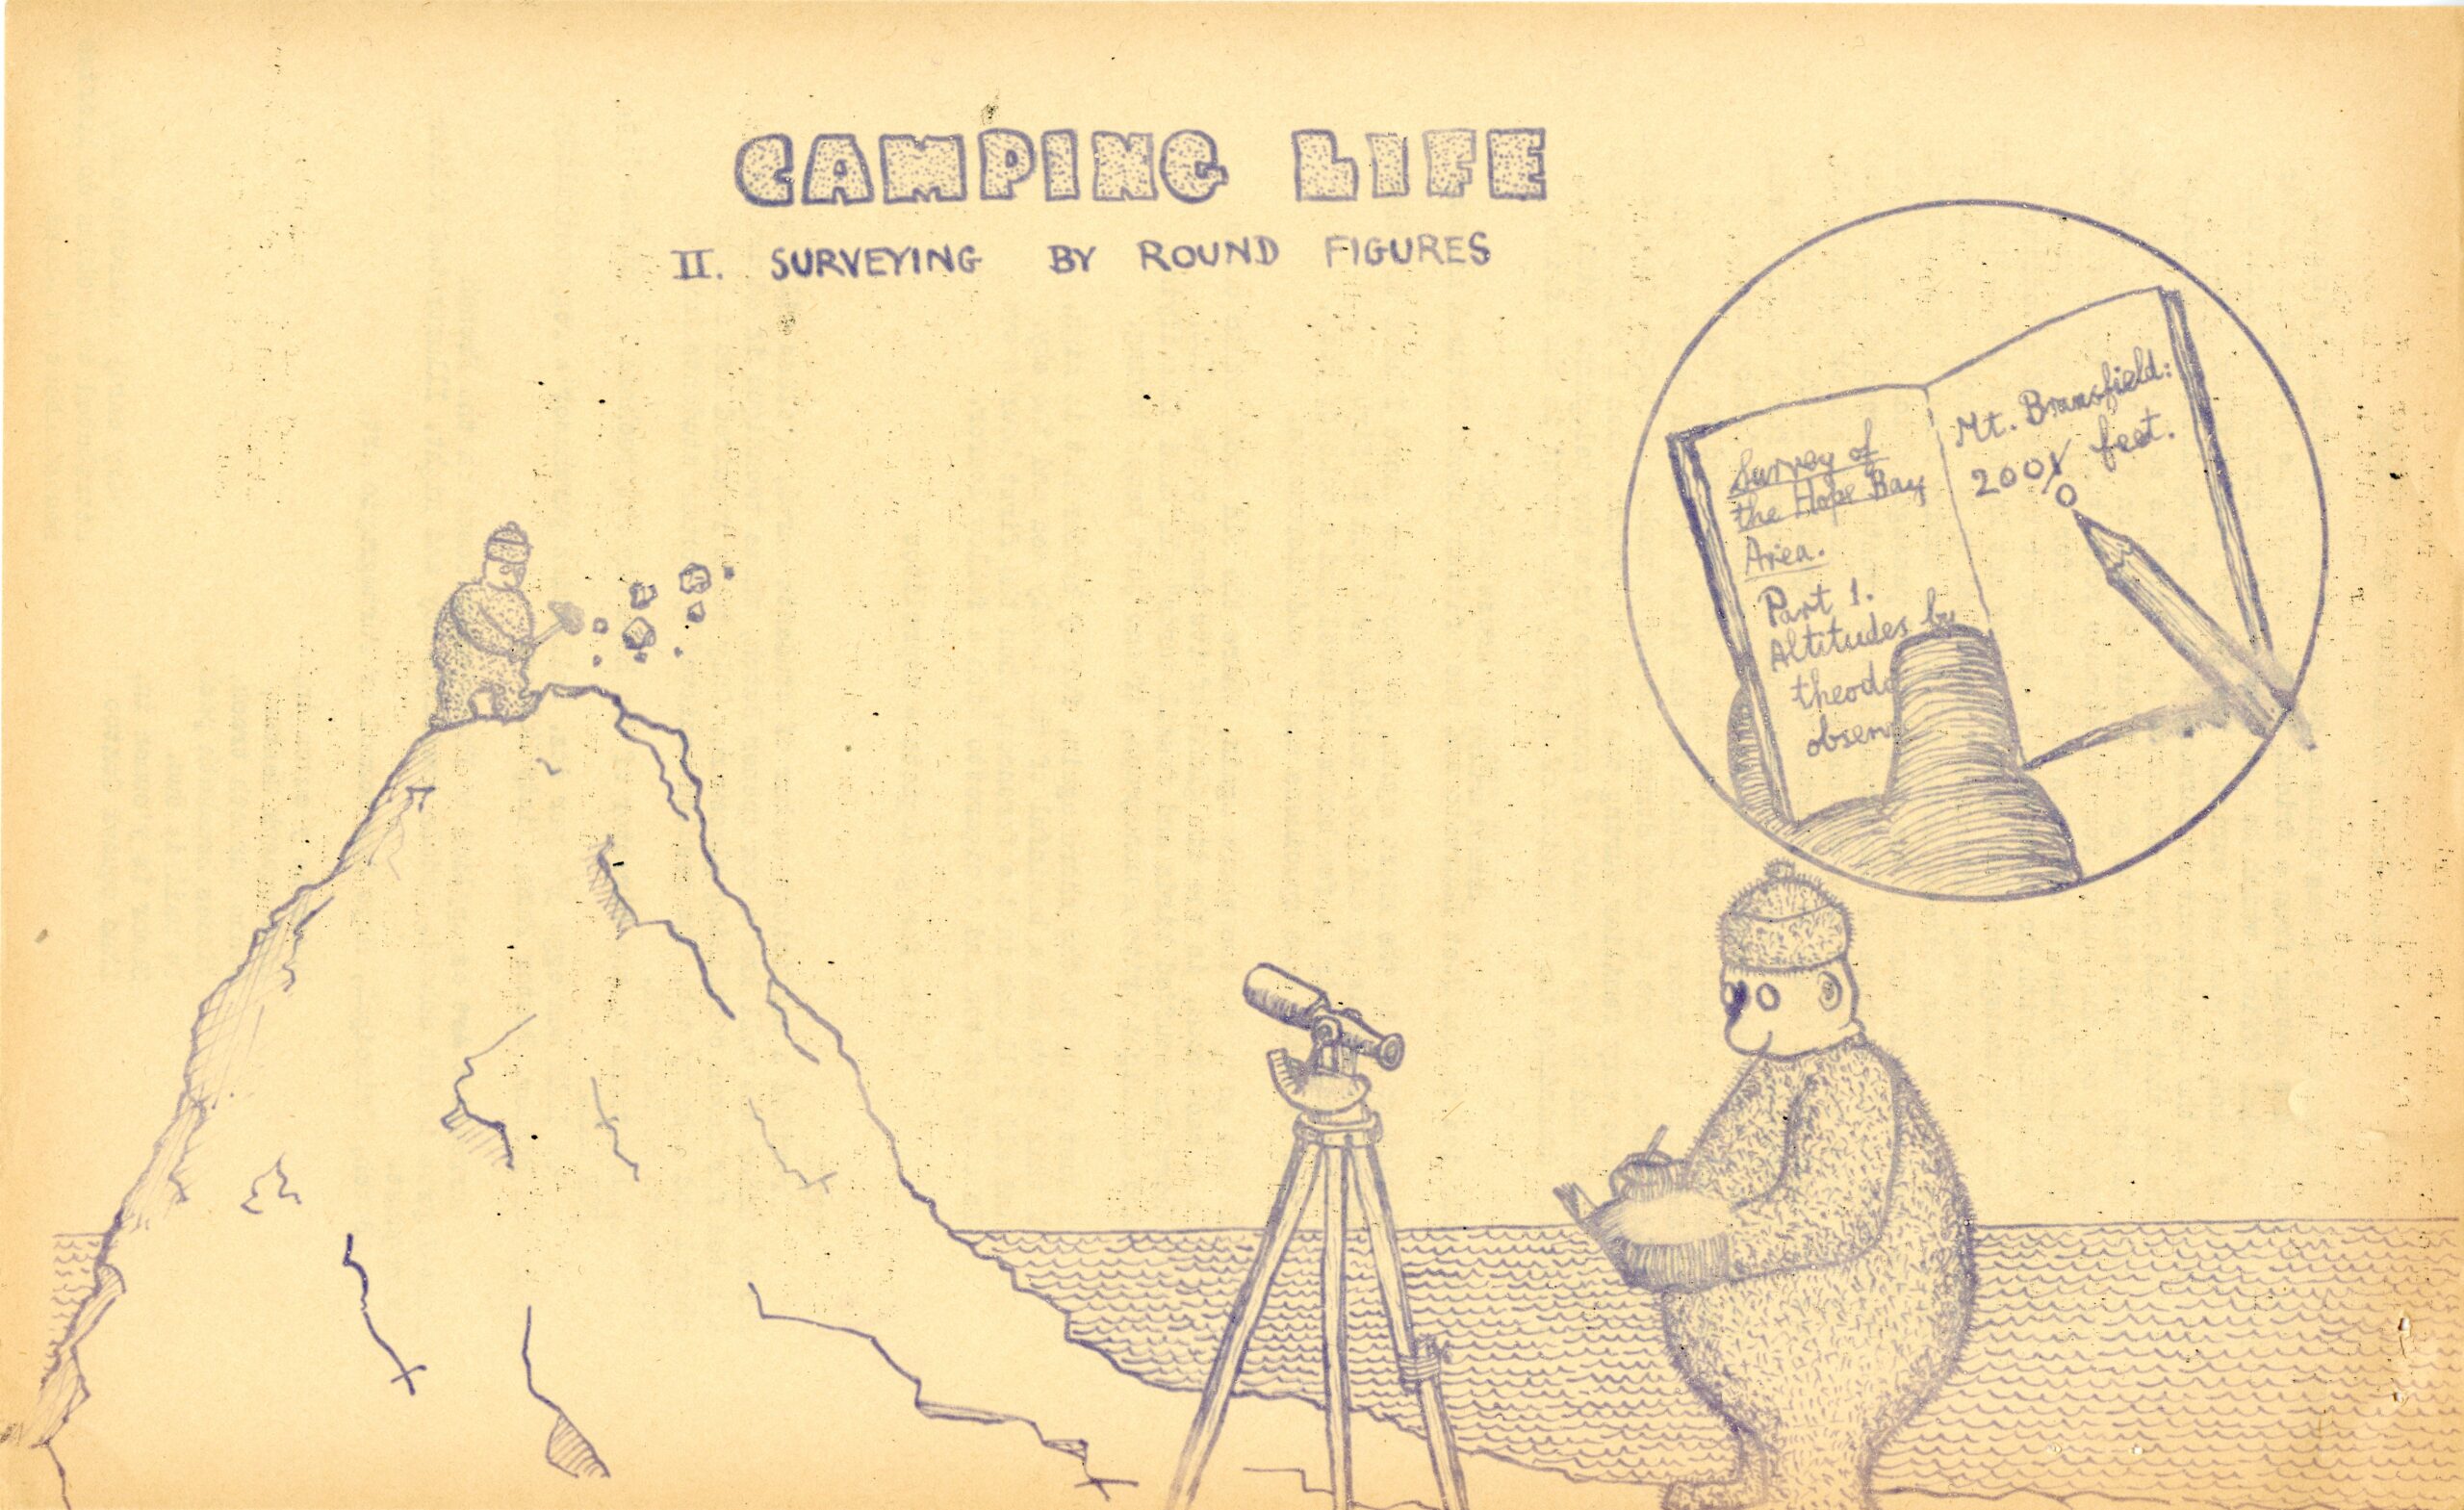 CAMPING LIFE
II. SURVEYING BY ROUND FIGURES
Survey of
the Hope Bay
Area.
Part 1.
Altitudes by
theodo
observ
Mt. Bransfield:
2001 feet.
0